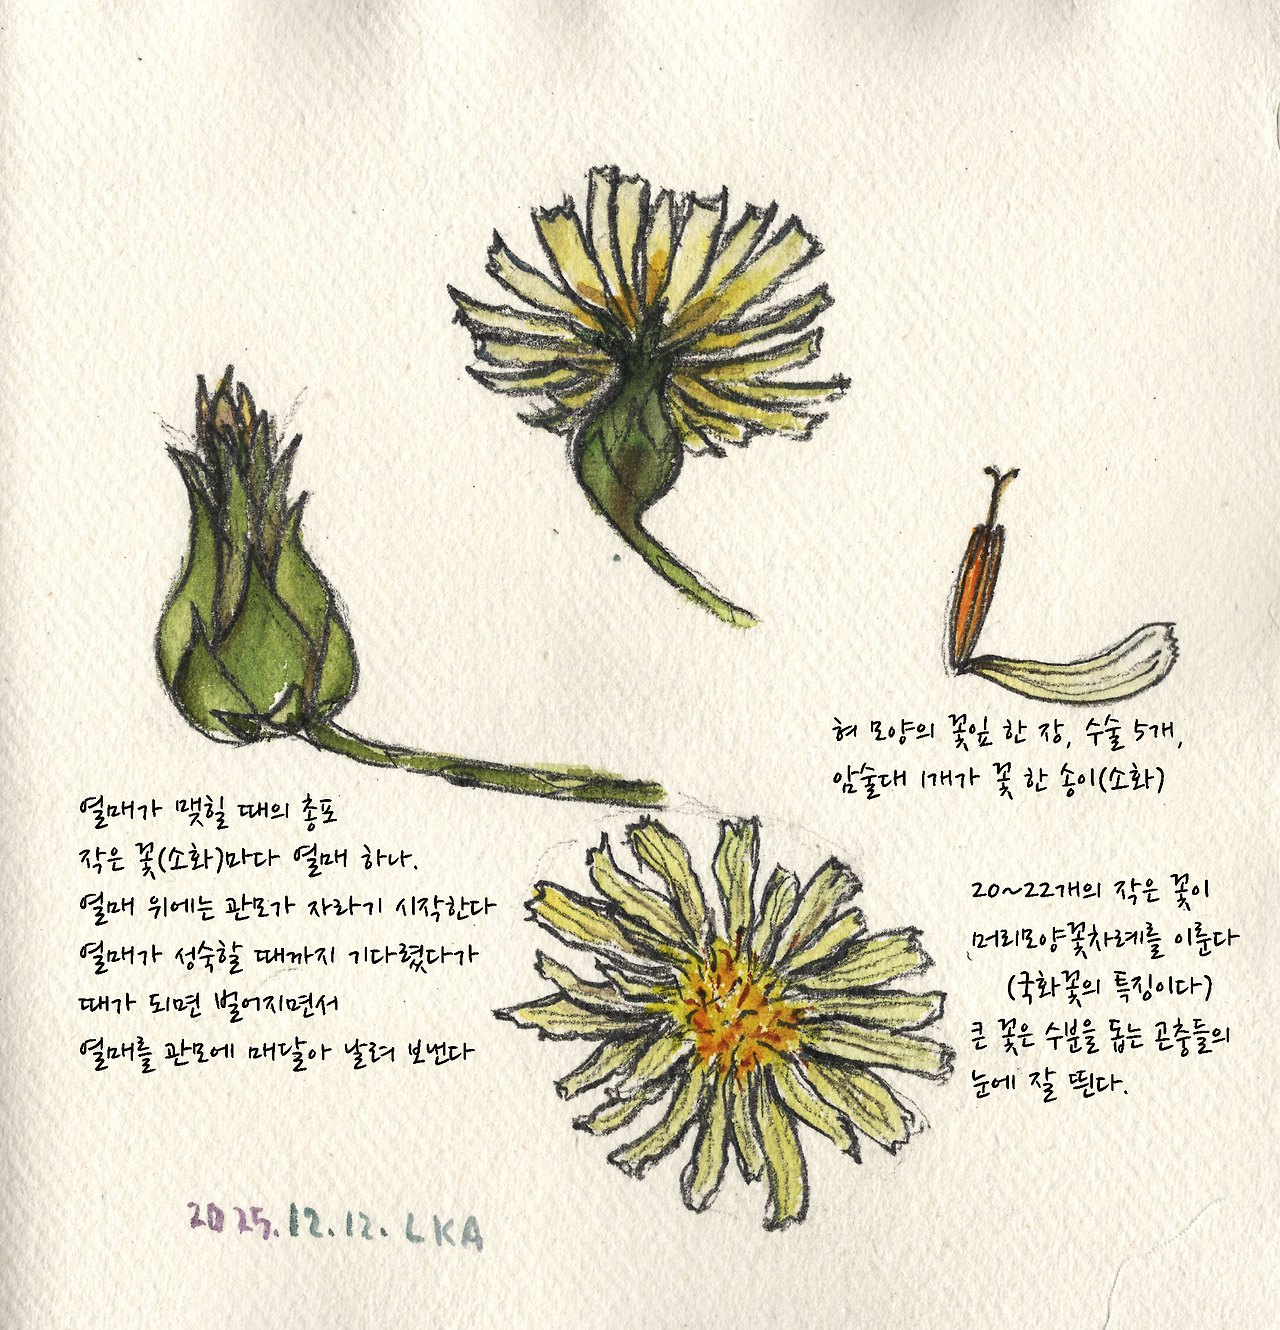 혀 모양의 꽃잎 한 장, 수술 5개,
암술대 1개가 꽃 한 송이(소화)
열매가 맺힐 때의 총포
작은 꽃(소화)마다 열매 하나.
열매 위에는 관모가 자라기 시작한다
열매가 성숙할 때까지 기다렸다가
때가 되면 벌어지면서
열매를 관모에 매달아 날려 보낸다
20~22개의 작은 꽃이
머리모양꽃차례를 이룬다
(국화꽃의 특징이다)
큰 꽃은 수분을 돕는 곤충들의
눈에 잘 띈다.
2025.12.12. LKA